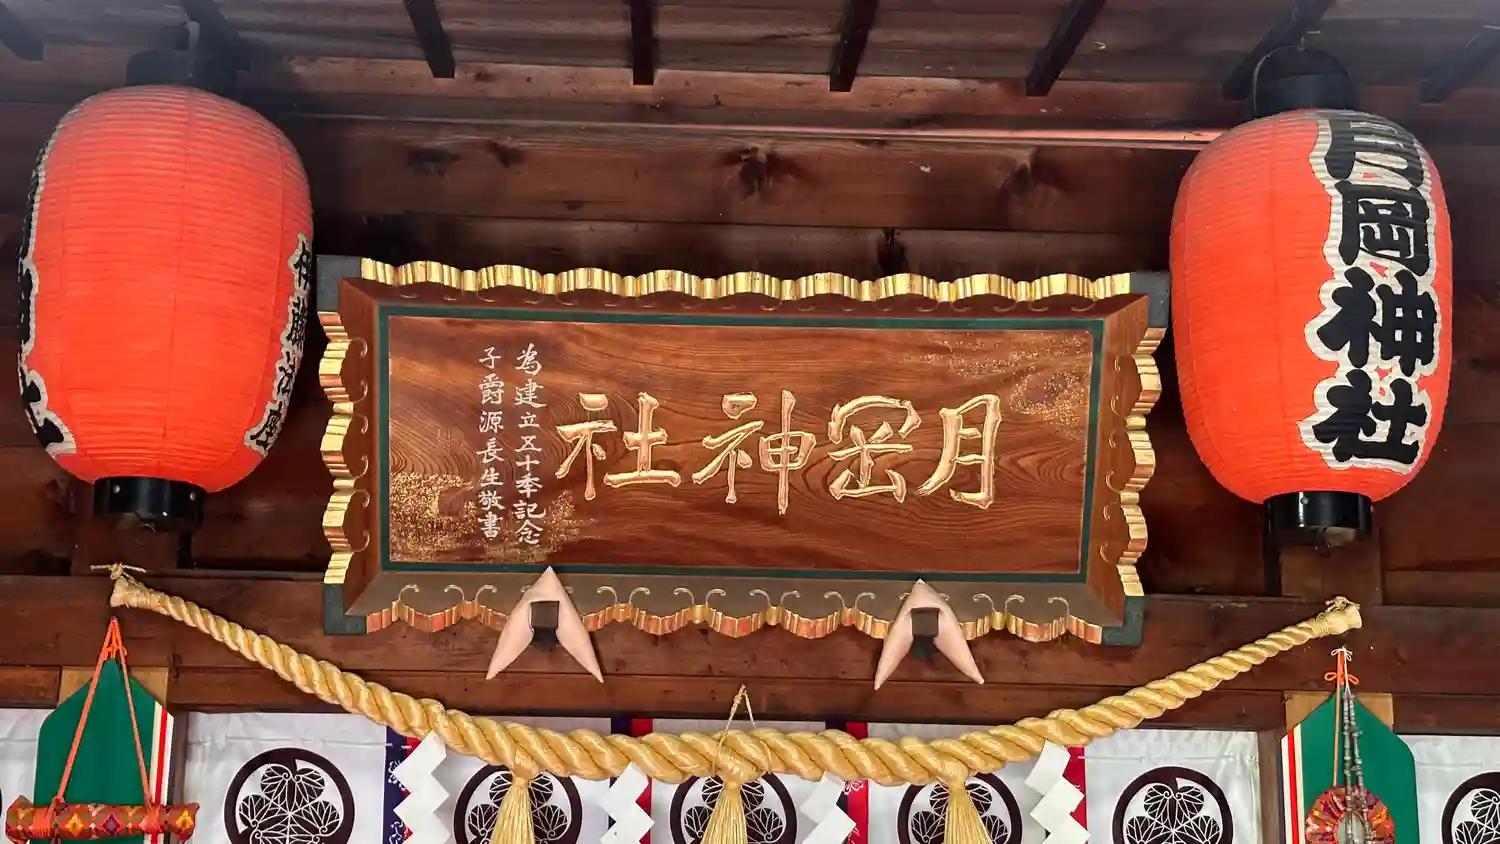 月岡神社
為建立五十年記念
子爵源長生敬書
月岡神社